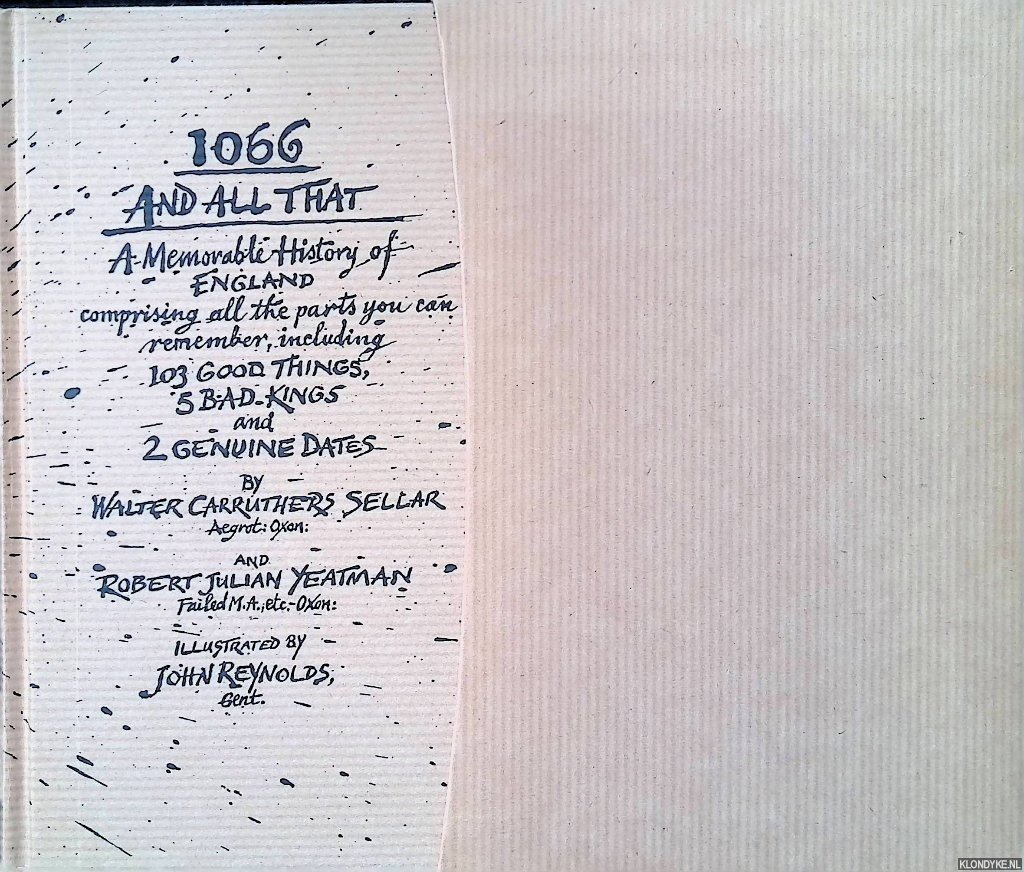 1066
AND ALL THAT
A Memorable History of
ENGLAND
comprising all the parts you can
remember, including
103 GOOD THINGS,
5 BAD KINGS
and
2 GENUINE DATES
BY
WALTER CARRUTHERS SELLAR
Aegrot: Oxon:
AND
ROBERT JULIAN YEATMAN
Failed M.A., etc. Oxon:
ILLUSTRATED BY
JOHN REYNOLDS,
Gent.
KLONDYKE.NL